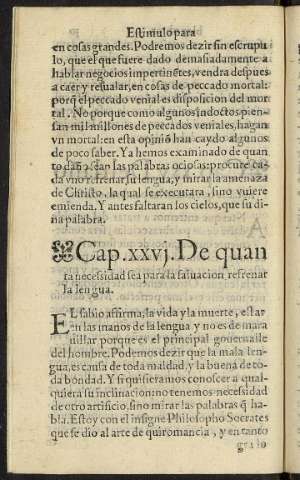 Estimulo para
en cosas grandes. Podremos dezir sin escrupu
lo, que el que fuere dado demasiadamente a
hablar negocios impertinẽtes, vendra despues
a caer y resualar, en cosas de peccado mortal:
porq̃ el peccado venial es disposicion del mor
tal. No porque como algunos indoctos pien-
san mil millones de peccados veniales, hagan
vn mortal: en esta opiniõ han caydo algunos
de poco saber. Ya hemos examinado de quan
to daño sean las palabras ociosas: procure ca
da vno refrenar su lengua, y mirar la amenaza
de Christo, la qual se executara, sino vuiere
emienda. Y antes faltaran los cielos, que su di
na palabra.
Cap. xxvj. De quan
ta necessidad sea para la saluacion refrenar
la lengua.
EL sabio affirma, la vida y la muerte, estar
en las manos de la lengua y no es de mara
uillar porque es el principal gouernalle
del hombre. Podemos dezir que la mala len-
gua, es causa de toda maldad, y la buena de to
da bondad. Y si quisieramos conoscer a qual-
quiera su inclinacion: no tenemos necessidad
de otro artificio, sino mirar las palabras q̃ ha-
bla. Estoy con el insigne Philosopho Socrates
que se dio al arte de quiromancia, y en tanto